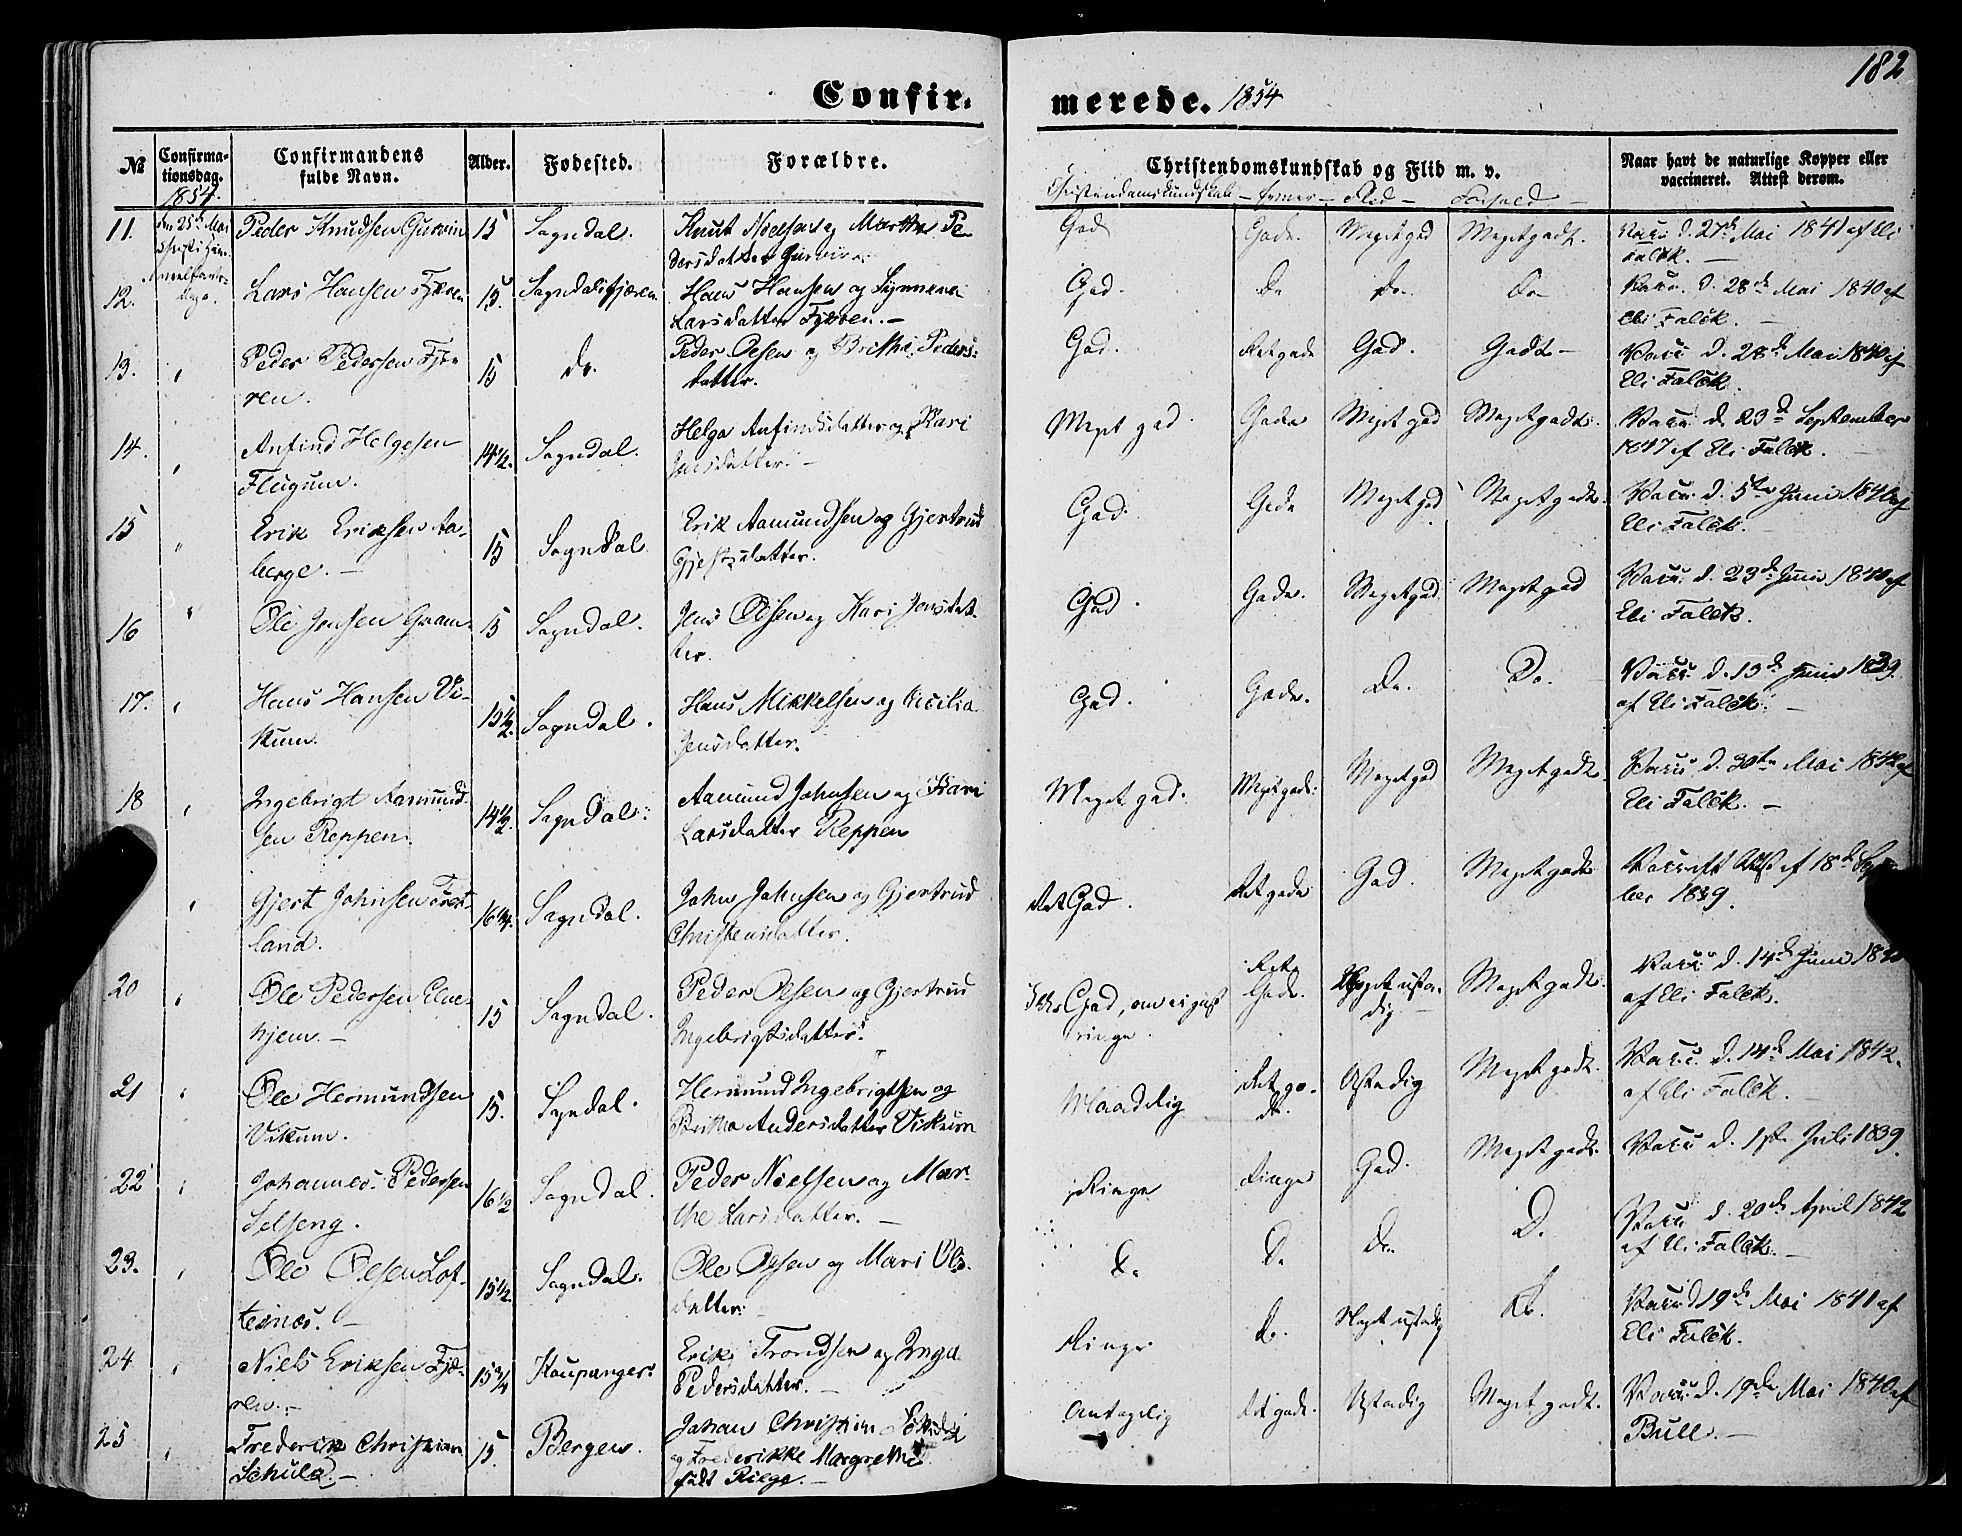 182
Confirmerede. 1854
№
Confirmationsdag.
Confirmandens fulde Navn.
Alder.
Fødested.
Forældre.
Christendomskundskab og Flid m. v.
Naar havt de naturlige Kopper eller vaccineret. Attest derom.
1854.
Christendomskundskab – Evner – Flid – Forhold –
11. den 25de Mai Peder Knudsen 15 Sogndal. Knut Nielsen og Martha Pe
dersdatter God Gode. Meget god Meget godt. Vacc. d. 27de Mai 1841 af Eli
Falck. –
12. Lars Hansen Fjæren 15. Sogndalsfjæren Hans Hansen og Synneva
Larsdatter Fjæren. – God. Do Do Do Vacc. d. 28de Mai 1840 af
Eli Falck. –
13. Peder Pedersen Fjæ
ren. 15 do. Peder Olsen og Britha Peders
datter. God. Ret gode God. Godt – Vacc. d. 28de Mai 1840 af
Eli Falck.
14. Anfind Helgesen
Flugum. 14 1/2. Sogndal. Helge Anfindsdatter og Kari
Jensdatter. – Meget god. Gode Meget god Meget godt. Vacc. d. 23d September
1847 af Eli Falck.
15 Erik Eriksen Aa-
berge. – 15 Sogndal. Erik Aamundsen og Gjertrud
God. Gode Meget god Meget godt. Vacc. d. 5te Juni 1840 af
Eli Falck.
16 Ole Jensen 15 Sogndal. Jens Olsen og Kari Jonsdat
ter. God. Gode. Meget god Meget god Vacc. d. 23de Juni 1840 af
Eli Falck.
17. Hans Hansen Vi-
kum. 15 1/2. Sogndal. Hans Mikkelsen og Cicilia
Jensdatter. God. Gode. Do. Do. Vacc. d. 13de Juni 1839.
af Eli Falck. –
18 Ingebrigt Aamund
sen Reppen. 14 1/2. Sogndal. Aamund Johnsen og Kari
Larsdatter Reppen Meget god. Meget gode. Meget god Meget godt. Vacc. d. 30te Mai 1842 af
Eli Falck. –
Gjert Johnsen
land. 16 3/4. Sogndal. John Johnsen og Gjertrud
Christensdatter. Ret God. Ret gode God. Meget godt af 18de
ber 1839.
20 Ole Pedersen
hjem. – 15 Sogndal. Peder Olsen og Gjertrud
Ingebrigtsdatter. God, Ret
Gode. Meget ustadig Meget godt. Vacc. d. 14de Juni
af Eli Falck.
21 Ole Hermundsen
Vikum. 15. Sogndal. Hermund Ingebrigtsen og
Britha Andersdatter Vikum Maadelig Ret go-
de. Ustadig Meget godt. Vacc. d. 14de Mai 1842.
af Eli Falck.
22 Johannes Pedersen
Selseng. 16 1/2 Sogndal. Peder Nielsen og Mar-
the Larsdatter. – Ringe Ringe God. Meget godt. Vacc. d. 1ste Juli 1839.
23. Ole Olsen Lof-
tesnæs. – 15 1/2. Sogndal. Ole Olsen og Mari Ols
datter. Do. Do. Do. D. Vacc. d. 20de April 1842
af Eli Falck. –
24 Niels Eriksen Fjæ-
ren. 15 3/4 Kaupanger. Erik Trondsen og Inga
Pedersdatter. – Ringe do. Meget ustadig Do. Vacc. d. 19de Mai 1841 af
Eli Falck.
25 Frederik Christian
Schulz. – 15. Bergen. Johan Christian
og Frederikke Margrethe
født – Antagelig Ret gode. Ustadig Meget godt. Vacc. d. 19de Mai 1840 af
Bull. –